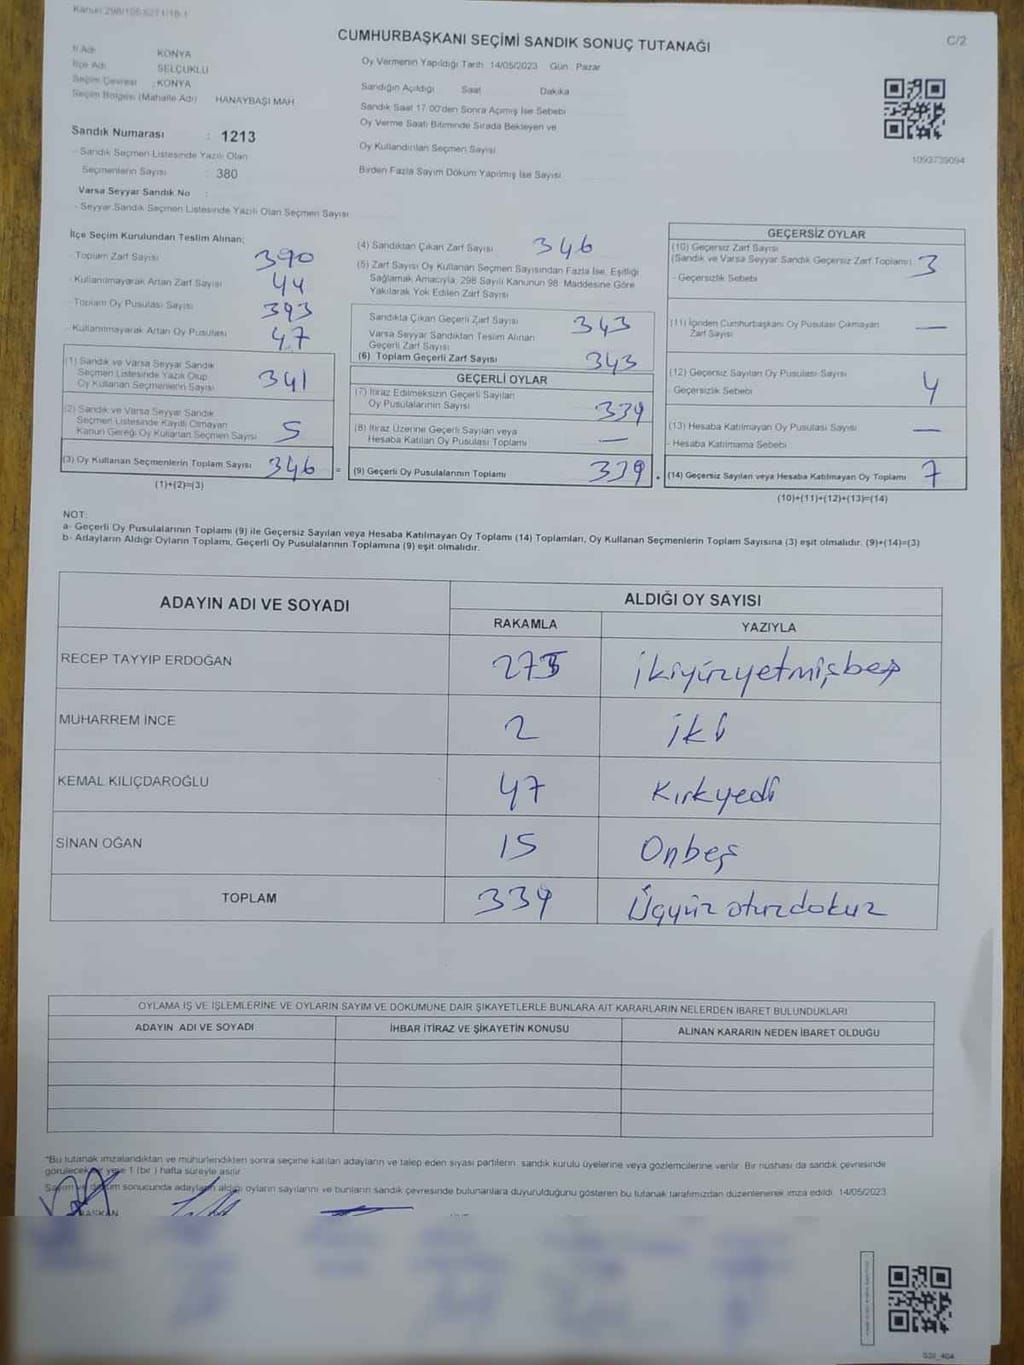 Kanun 298/105,6271/18-1
CUMHURBAŞKANI SEÇİMİ SANDIK SONUÇ TUTANAĞI
C/2
İl Adı KONYA
İlçe Adı SELÇUKLU
Seçim Çevresi : KONYA
Seçim Bölgesi (Mahalle Adı) HANAYBAŞI MAH
Sandık Numarası : 1213
- Sandık Seçmen Listesinde Yazılı Olan
Seçmenlerin Sayısı : 380
Varsa Seyyar Sandık No :
- Seyyar Sandık Seçmen Listesinde Yazılı Olan Seçmen Sayısı
Oy Vermenin Yapıldığı Tarih 14/05/2023 Gün : Pazar
Sandığın Açıldığı Saat Dakika
Sandık Saat 17.00'den Sonra Açılmış İse Sebebi
Oy Verme Saati Bitiminde Sırada Bekleyen ve
Oy Kullandırılan Seçmen Sayısı
Birden Fazla Sayım Döküm Yapılmış İse Sayısı
1093739094
İlçe Seçim Kurulundan Teslim Alınan;
- Toplam Zarf Sayısı 390
- Kullanılmayarak Artan Zarf Sayısı 44
- Toplam Oy Pusulası Sayısı 393
- Kullanılmayarak Artan Oy Pusulası 47
(1) Sandık ve Varsa Seyyar Sandık
Seçmen Listesinde Yazılı Olup
Oy Kullanan Seçmenlerin Sayısı 341
(2) Sandık ve Varsa Seyyar Sandık
Seçmen Listesinde Kayıtlı Olmayan
Kanun Gereği Oy Kullanan Seçmen Sayısı 5
(3) Oy Kullanan Seçmenlerin Toplam Sayısı 346 =
(1)+(2)=(3)
(4) Sandıktan Çıkan Zarf Sayısı 346
(5) Zarf Sayısı Oy Kullanan Seçmen Sayısından Fazla İse, Eşitliği
Sağlamak Amacıyla, 298 Sayılı Kanunun 98. Maddesine Göre
Yakılarak Yok Edilen Zarf Sayısı
Sandıkta Çıkan Geçerli Zarf Sayısı 343
Varsa Seyyar Sandıktan Teslim Alınan
Geçerli Zarf Sayısı
(6) Toplam Geçerli Zarf Sayısı 343
GEÇERLİ OYLAR
(7) İtiraz Edilmeksizin Geçerli Sayılan
Oy Pusulalarının Sayısı 339
(8) İtiraz Üzerine Geçerli Sayılan veya
Hesaba Katılan Oy Pusulası Toplamı —
(9) Geçerli Oy Pusulalarının Toplamı 339 +
GEÇERSİZ OYLAR
(10) Geçersiz Zarf Sayısı
(Sandık ve Varsa Seyyar Sandık Geçersiz Zarf Toplamı) 3
- Geçersizlik Sebebi
(11) İçinden Cumhurbaşkanı Oy Pusulası Çıkmayan
Zarf Sayısı —
(12) Geçersiz Sayılan Oy Pusulası Sayısı
Geçersizlik Sebebi 4
(13) Hesaba Katılmayan Oy Pusulası Sayısı —
- Hesaba Katılmama Sebebi
(14) Geçersiz Sayılan veya Hesaba Katılmayan Oy Toplamı 7
(10)+(11)+(12)+(13)=(14)
NOT:
a- Geçerli Oy Pusulalarının Toplamı (9) ile Geçersiz Sayılan veya Hesaba Katılmayan Oy Toplamı (14) Toplamları, Oy Kullanan Seçmenlerin Toplam Sayısına (3) eşit olmalıdır. (9)+(14)=(3)
b- Adayların Aldığı Oyların Toplamı, Geçerli Oy Pusulalarının Toplamına (9) eşit olmalıdır.
ADAYIN ADI VE SOYADI
ALDIĞI OY SAYISI
RAKAMLA YAZIYLA
RECEP TAYYIP ERDOĞAN 275 ikiyüzyetmişbeş
MUHARREM İNCE 2 iki
KEMAL KILIÇDAROĞLU 47 Kırkyedi
SİNAN OĞAN 15 Onbeş
TOPLAM 339 Üçyüz otuzdokuz
OYLAMA İŞ VE İŞLEMLERİNE VE OYLARIN SAYIM VE DÖKÜMÜNE DAİR ŞİKAYETLERLE BUNLARA AİT KARARLARIN NELERDEN İBARET BULUNDUKLARI
ADAYIN ADI VE SOYADI İHBAR İTİRAZ VE ŞİKAYETİN KONUSU ALINAN KARARIN NEDEN İBARET OLDUĞU
*Bu tutanak imzalandıktan ve mühürlendikten sonra seçime katılan adayların ve talep eden siyasi partilerin sandık kurulu üyelerine veya gözlemcilerine verilir. Bir nüshası da sandık çevresinde
görülecek bir yere 1 (bir) hafta süreyle asılır.
Sayım ve döküm sonucunda adayların aldığı oyların sayılarını ve bunların sandık çevresinde bulunanlara duyurulduğunu gösteren bu tutanak tarafımızdan düzenlenerek imza edildi. 14/05/2023
BAŞKAN